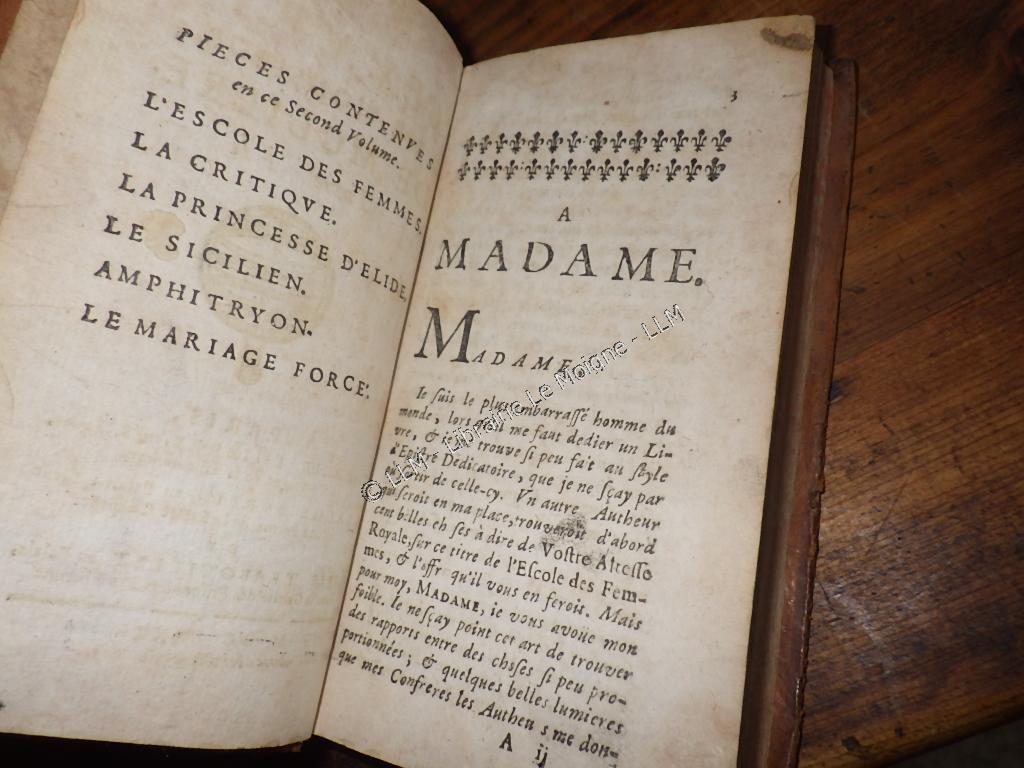 PIECES CONTENVES
en ce Second Volume.
L'ESCOLE DES FEMMES,
LA CRITIQVE.
LA PRINCESSE D'ELIDE,
LE SICILIEN.
AMPHITRYON.
LE MARIAGE FORCE'.
3
A
MADAME.
MADAME,
Ie ſuis le plus embarraſſé homme du
monde, lors qu'il me faut dedier un Li-
vre, & je me trouve ſi peu fait au ſtyle
d'Epiſtre Dedicatoire, que je ne ſçay par
où ſortir de celle-cy. Vn autre Autheur
qui ſeroit en ma place, trouveroit d'abord
cent belles choſes à dire de Voſtre Alteſſe
Royale, ſur ce titre de l'Eſcole des Fem-
mes, & l'offre qu'il vous en feroit. Mais
pour moy, MADAME, ie vous avoüe mon
foible. Ie ne ſçay point cet art de trouver
des rapports entre des choſes ſi peu pro-
portionnées; & quelques belles lumieres
que mes Confreres les Autheurs me don-
A ij
© LLM - Librairie Le Moigne - LLM